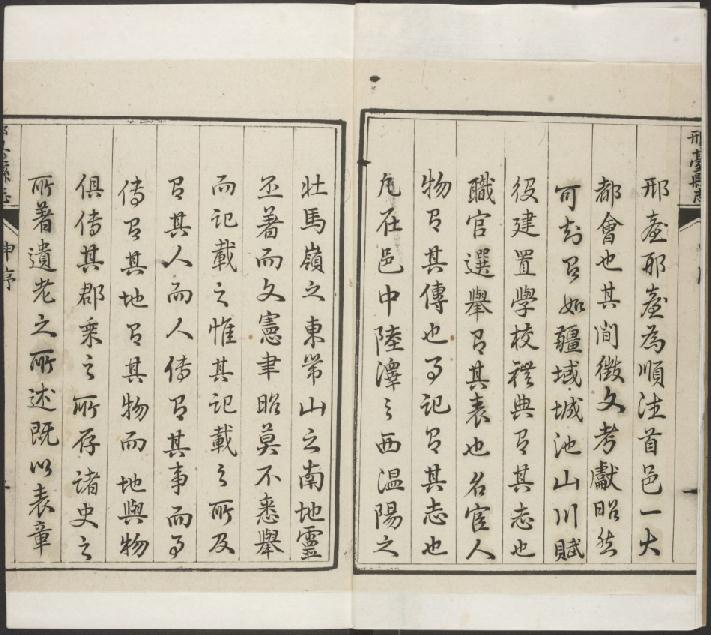 邢臺縣志
邢臺邢臺為順法首邑一大
都會也其间徵文考獻昭然
可考有如疆域城池山川賦
役建置學校禮典有其志也
職官選舉有其表也名宦人
物有其傳也事記有其志也
凡在邑中陸澤之西温陽之
壯馬嶺之東常山之南地靈
丕著而文憲聿昭莫不悉舉
而记載之惟其记載之所及
有其人而人傳有其事而事
傳有其地有其物而地與物
俱傳其郡乘之所存諸史之
所著遺老之所述既以表章
序